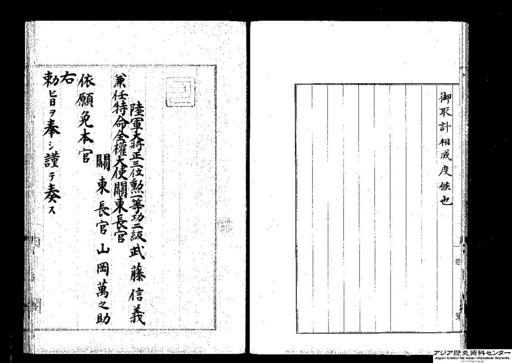 御取計相成度候也
陸軍大将正三位勲一等功二級武藤信義
兼任特命全権大使關東長官
關東長官山岡萬之助
依願免本官
右
勅旨ヲ奉シ謹テ奏ス
アジア歴史資料センター
Japan Center for Asian Historical Records